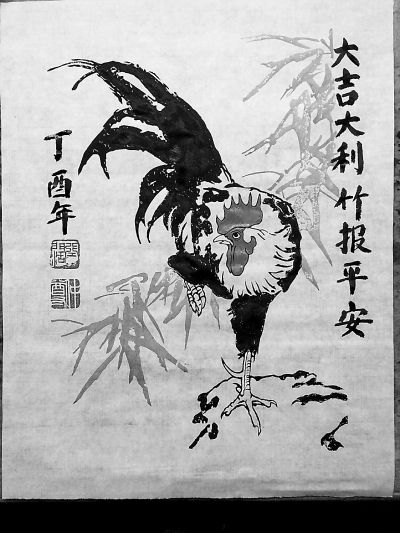 大吉大利竹报平安
丁酉年